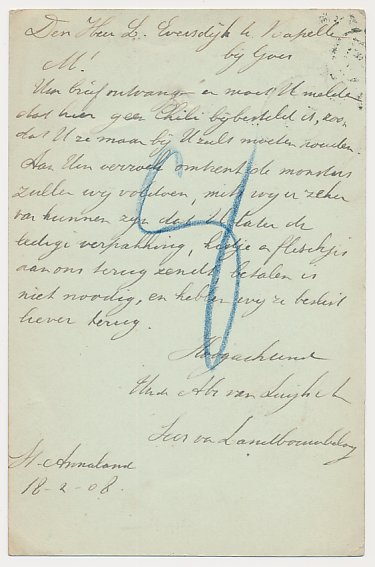 Den Heer L. Eversdijk te Kapelle
bij Goes
M!
Uw brief ontvangen en moet U melden
dat hier geen Chili bijbesteld is, zoo
dat U ze maar bij U zult moeten houden
Aan Uw verzoek omtrent de monsters
zullen wij voldoen, mits wij er zeker
van kunnen zijn dat U later de
ledige verpakking, kistje en fleschjes
aan ons terug zendt, betalen is
niet noodig, en hebben wij ze beslist
liever terug.
Hoogachtend
Abr van
Secr van Landbouwbelang
St. Annaland
18-2-08.